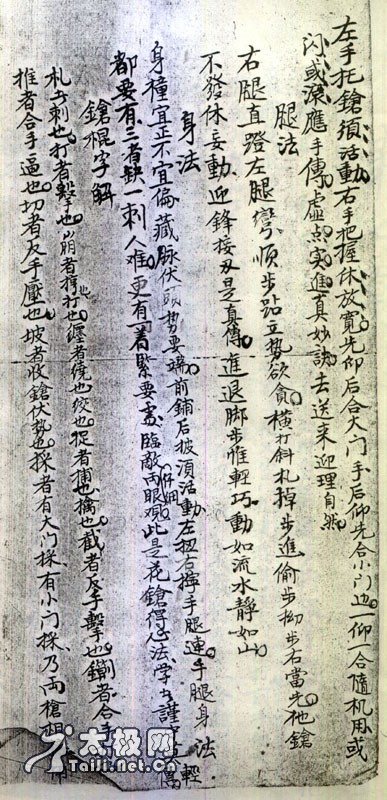 左手托鎗須活動右手把握休放寬先仰后合大门手后仰先合小门边一仰一合隨机用或
闪或滚應手傳虛点实進真妙訣去送来迎理自然
腿法
右腿直蹬左腿彎順步跕立势欲貪橫打斜札掉步進偷步拗步右當先他鎗
不發休妄動迎鋒接及是真傳進退脚步惟輕巧動如流水靜如山
身法
身橦宜正不宜偏藏脉伏頭势要端前鋪后披須活動左扭右擰手腿連手腿身法
都要有三者缺一刺人难更有一着緊要處臨敵兩眼仔細观此是花鎗得心法学者謹
鎗棍字解
札者刺也打者擊也崩者撑打也纏者绕也绞也捉者捕也擒也截者反手擊也鍘者合手
推者合手逼也切者反手壓也坡者收鎗伏势也採者有大门採有小门採乃両槍相
太极网
Taiji.net.cn